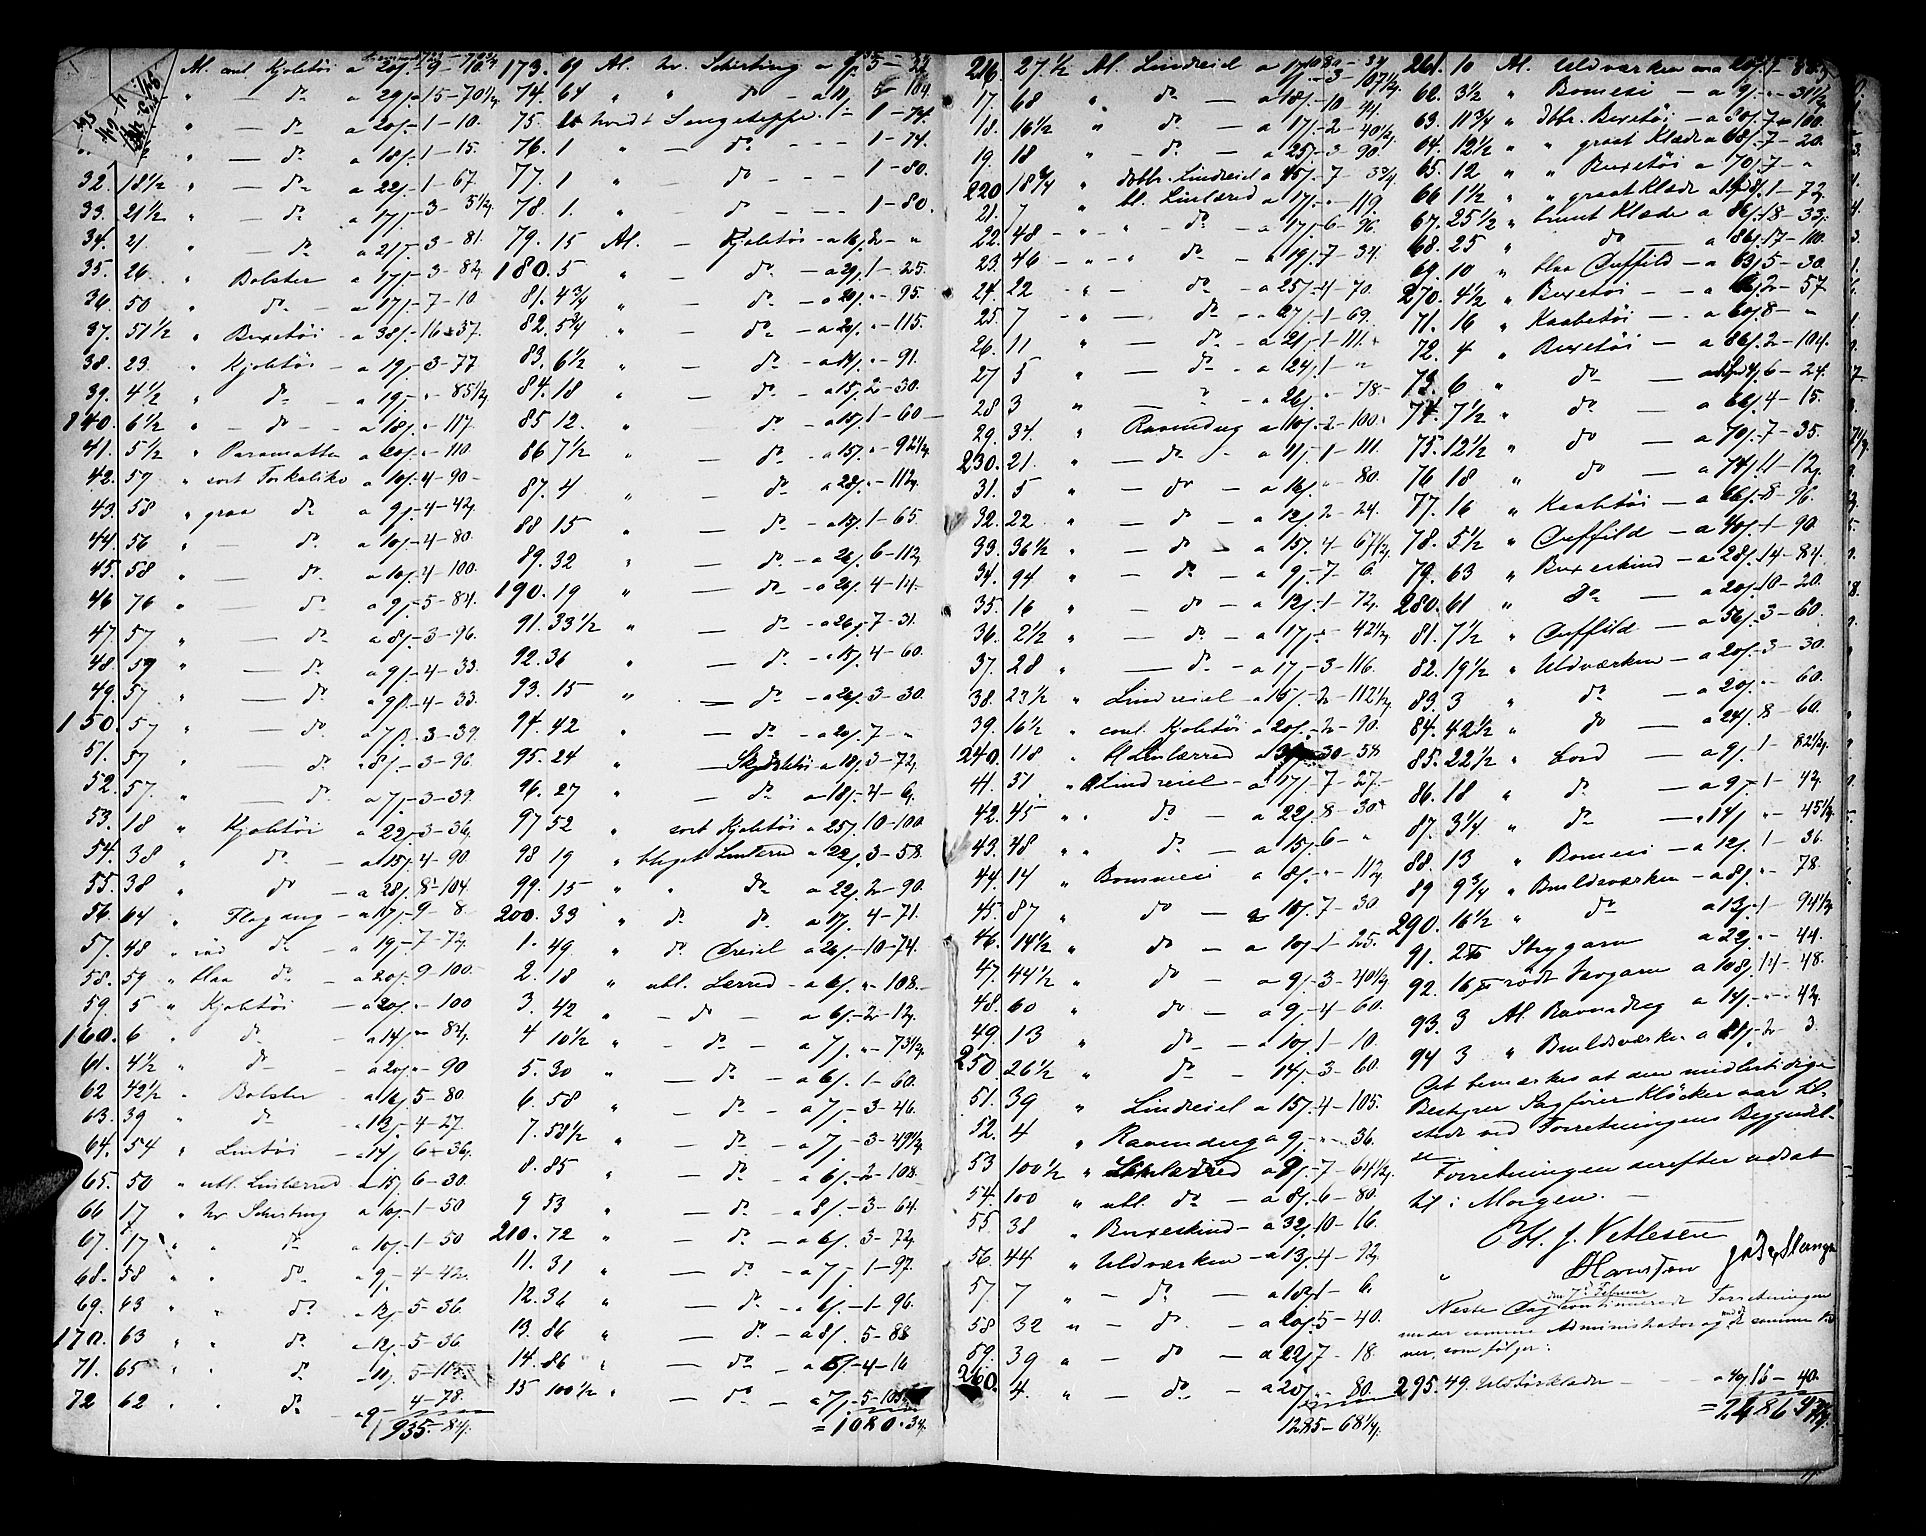 Al. coul. Kjoletøi a 20/- 9 - 70
" — do a 29/- 15 - 70 1/2
" — do a 20/- 1 - 10.
" — do a 18/- 1 - 15.
32. 18 1/2 " — do a 22/- 1 - 67.
33. 21 1/2 " — do a 17/- 3 - 5 1/2
34. 21. " — do a 21/- 3 - 81.
35. 26. " Bolster — a 17/- 3 - 82
36. 50 " do — a 17/- 7 - 10.
37. 51 1/2 " Buxetøi — a 38/- 16 - 37.
38. 23. " Kjoletøi — a 19/- 3 - 77
39. 4 1/2 " do — a 19/- " - 85 1/2
140. 6 1/2 " — do — a 18/- " - 117.
41. 5 1/2 " Paramatta — a 20/- " - 110.
42. 57 " sort Forkaliko a 10/- 4 - 90 -
43. 58 " graa do a 9/- 4 - 42
44. 56 " — do a 10/- 4 - 80.
45. 58 " — do a 10/- 4 - 100.
46 76 " — do a 9/- 5 - 84.
47. 57 " — do a 8/- 3 - 96.
48. 59 " — do a 9/- 4 - 33.
49. 57 " — do a 9/- 4 - 33.
150. 57 " — do a 7/- 3 - 39.
51. 57 " — do a 8/- 3 - 96.
52. 57. " — do a 7/- 3 - 39.
53. 18 " Kjoletøi a 22/- 3 - 36.
54. 38 " do — a 15/- 4 - 90.
55. 38 " do — a 28/- 8 - 104.
56. 64 " Flagdug — a 17/- 9 - 8.
57. 48 " rød do — a 19/- 7 - 72
58. 59 " blaa do — a 20/- 9 - 100.
59. 5 " Kjoletøi — a 20/- " - 100
160. 6 " do — a 14/- " - 84.
61. 4 1/2 " do — a 20/- " - 90
62 42 1/2 " Bolster — a 16/- 5 - 80.
63. 39 " do — a 13/- 4 - 27.
64. 54 " Lintøi — a 14/- 6 - 36.
65. 50 " ubl. Linlærred — a 15/- 6 - 30.
66 17 " hv. Schirting a 10/- 1 - 50
67. 17 " " do a 10/- 1 - 50
68. 58 " " do a 9/- 4 - 42.
69. 43 " " do a 12/- 5 - 36.
170. 63 " " do a 12/- 5 - 36.
71. 65 " " do a 11/- 5 - 115.
72 62 " " do a 9 - 4 - 78.
935 - 84.
173. 69 Al. hv. Schirting a 9/- 5 - 22
74. 64 " " do — a 11/- 5 - 104.
75. 1 hvidt Sengeteppe. 1 - 1 - 74.
76. 1 " — do - - - 1 - 74.
77. 1 " — do - - - 1 - 80.
78. 1. " — do - - - 1 - 80.
79. 15 Al. — Kjoletøi — a 16/- 2 - "
180. 5 " — do — a 29/- 1 - 25.
81. 4 3/4 " — do — a 20/- " - 95.
82. 5 3/4 " — do — a 20/- " - 115.
83. 6 1/2 " — do — a 14/- " - 91.
84. 18 " — do — a 15/- 2 - 30.
85 12. " — do — a 15/- 1 - 60 —
86 7 1/2 " — do — a 15/- " - 92 1/2
87. 4 " — do — a 28/- " - 112
88 15 " — do — a 1/- 1 - 65.
89. 32 " — do — a 26/- 6 - 112
190. 19 " — do — a 29/- 4 - 14.
91. 33 1/2 " — do — a 26/- 7 - 31.
92. 36 " — do — a 15/- 4 - 60.
93. 15 " — do — a 26/- 3 - 30.
94. 42 " — do — a 20/- 7 - "
95. 24 " — Skjortetøi a 18/- 3 - 72
96. 27 " — do — a 18/- 4 - 6.
97 52 " sort Kjoletøi a 25/- 10 - 100
98 19 " bleget Linlærred a 22/- 3 - 58.
99. 15 " " do a 22/- 2 - 90.
200. 33 " do do. a 17/- 4 - 71.
1. 49 " do Creiel a 26/- 10 - 74.
2. 18 " ubl. Lerred — a 6/- " - 108.
3. 42 " — do — a 6/- 2 - 12.
4 10 1/2 " — do — a 7/- " - 73 1/2
5. 30 " — do — a 6/- 1 - 60.
6. 58 " — do — a 7/- 3 - 46.
7. 58 1/2 " — do — a 7/- 3 - 49 1/2
8. 85 " — do — a 6/- 2 - 108.
9 53 " — do — a 8/- 3 - 64.
210. 72 " — do — a 6/- 3 - 72
11. 31 " — do — a 7/- 1 - 97.
12. 36 " — do — a 6/- 1 - 96.
13. 86 " — do — a 8/- 5 - 88
14. 86 " — do — a 6/- 4 - 16
15 100 1/2 " — do — a 7/- 5 - 103
= 1080 . 34
216. 27 1/2 Al. Lindreiel — a 17/-
17. 68 " do — a 18/- 10 - 24.
18. 16 1/2 " do — a 17/- 2 - 40 1/2
19. 18 " — do — a 25/- 3 - 90.
220 18 3/4 " dobb. Lindreiel a 45/- 7 - 3 3/4
21. 7 " bl. Linlærred a 17/- " - 119
22. 48 - " - do - a 17/- 6 - 96.
23. 46 - " - do — a 19/- 7 - 34.
24. 22 - " - do — a 25/- 4 - 70.
25. 7 - " - do — a 27/- 1 - 69.
26. 11 " — do — a 21/- 1 - 111.
27 5 " — do — a 24/- 1 - "
28 3 " — " — a 26/- " - 78 -
29. 34. " Ravendug a 10/- 2 - 100.
230. 21. " — do — a 11/- 1 - 111.
31. 5 " — do — a 16/- " - 80.
32. 22 " — do — a 12/- 2 - 24.
33. 36 1/2 " — do — a 15/- 4 - 67 1/2
34. 94 " — do — a 9/- 7 - 6
35. 16 " — do — a 12/- 1 - 72
36. 2 1/2 " — do — a 17/- " - 42 1/2
37. 28 " — do — a 17/- 3 - 116.
38. 23 1/2 " Lindreiel — a 15/- 2 - 112 1/2
39. 16 1/2 " coul. Kjoletøi a 20/- 2 - 90.
240. 118 " Linlærred a 30 - 58
41. 51 " Lindreiel — a 17/- 7 - 27 -
42. 45 " " do — a 22/- 8 - 30
43. 48 " " do — a 15/- 6 - "
44. 14 " Bommesi — a 8/- " - 112
45. 87 " do — a 10/- 7 - 30
46. 14 1/2 " do — a 10/- 1 - 25.
47. 44 1/2 " do — a 9/- 3 - 40 1/2
48. 60 " do — a 9/- 4 - 60.
49. 13 " do — a 10/- 1 - 10.
250. 26 1/2 " do — 14/- 3 - 60.
51. 39 " Lindreiel a 15/- 4 - 105.
52. 4 " Ravendug a 9/- " - 36.
53 100 1/2 " Linlærred a 9/- 7 - 64 1/2
54. 100 " ubl. do — a 8/- 6 - 80.
55. 38 " Buxeskind — a 32/- 10 - 16.
56. 44 " Uldværken — a 13/- 4 - 92
57. 7 " — do — a 18/- 1 - 6.
58 32 " — do — a 20/- 5 - 40.
59. 39 " — do — a 22/- 7 - 18.
260. 4. " — do — a 20/- " 80.
1285 - 68 1/4.
261. 10 Al. Uldværken a 20/-
62. 3 1/2 " Bomesi — a 9/- " - 31 1/2
63. 11 3/4 " dobb. Buxetøi — a 30/- 7 - 100.
64. 12 1/2 " " graat Klæde a 68/- 7 - 20.
65. 12 " " Buxetøi a 70/- 7 - "
66 1 1/2 " " graat Klæde a 1 - 72
67. 25 1/2 " brunt Klæde a 86/- 18 - 33.
68. 25 " do — a 86/- 17 - 110.
69. 10 " blaa Duffild — a 63/- 5 - 30.
270. 4 1/2 " Buxetøi — — a 66/- 2 - 57
71. 16 " Kaabetøi — — a 60/- 8 - "
72. 4 " Buxetøi — a 86/- 2 - 104.
73. 6 " do — a 6 - 24.
74. 7 1/2 " do — a 66/- 4 - 15.
75. 12 1/2 " do — a 70/- 7 - 35.
76 18 " do — a 74/- 11 - 12
77. 16 " Kaabetøi — a 66/- 8 - 96.
78. 5 1/2 " Duffild — a 40/- 1 - 90.
79. 63 " Buxeskind — a 28/- 14 - 84.
280. 61 " do — a 20/- 10 - 20.
81. 7 1/2 " Duffild — a 56/- 3 - 60.
82. 19 1/2 " Uldværken — a 20/- 3 - 30.
83. 3 " do — a 20/- " 60.
84. 42 1/2 " do — a 24/- 8 - 60.
85. 22 1/2 " Lord — a 9/- 1 - 82 1/2
86. 18 " do — a 9/- 1 - 42
87. 3 1/4 " do — a 14/- " - 45 1/2
88. 13 " Bomesi — a 12/- 1 - 36.
89 9 3/4 " Bmldsværken — a 8/- " - 78.
290. 16 1/2 " do — a 13/- 1 - 94 1/2
91. 2 Strygarn a 22/- " - 44.
92. 16 rødt Vævgarn a 108/- 14 - 48.
93. 3 Al. Ravendug a 14/- " - 42
94 3 " Bmldsværken a 81/- 2 - 3.
Det bemærkes at den midlertidige
Bestyrer Sagfører Klöcker var til-
stede ved Forretningens Begyndel-
se.
Forretningen derefter udsat
til i Morgen. —
J. Vetlesen
Hansson
den 7de Februar
Neste Dag continueredes Forretningen
under samme Administrator og med de samme
som følger:
295. 49. Uldtørklæder — a 40/- 16 - 40.
= 2486